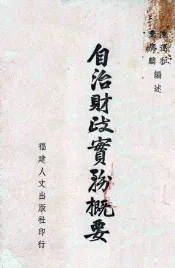 編述
自治財政實務概要
福建人文出版社印行